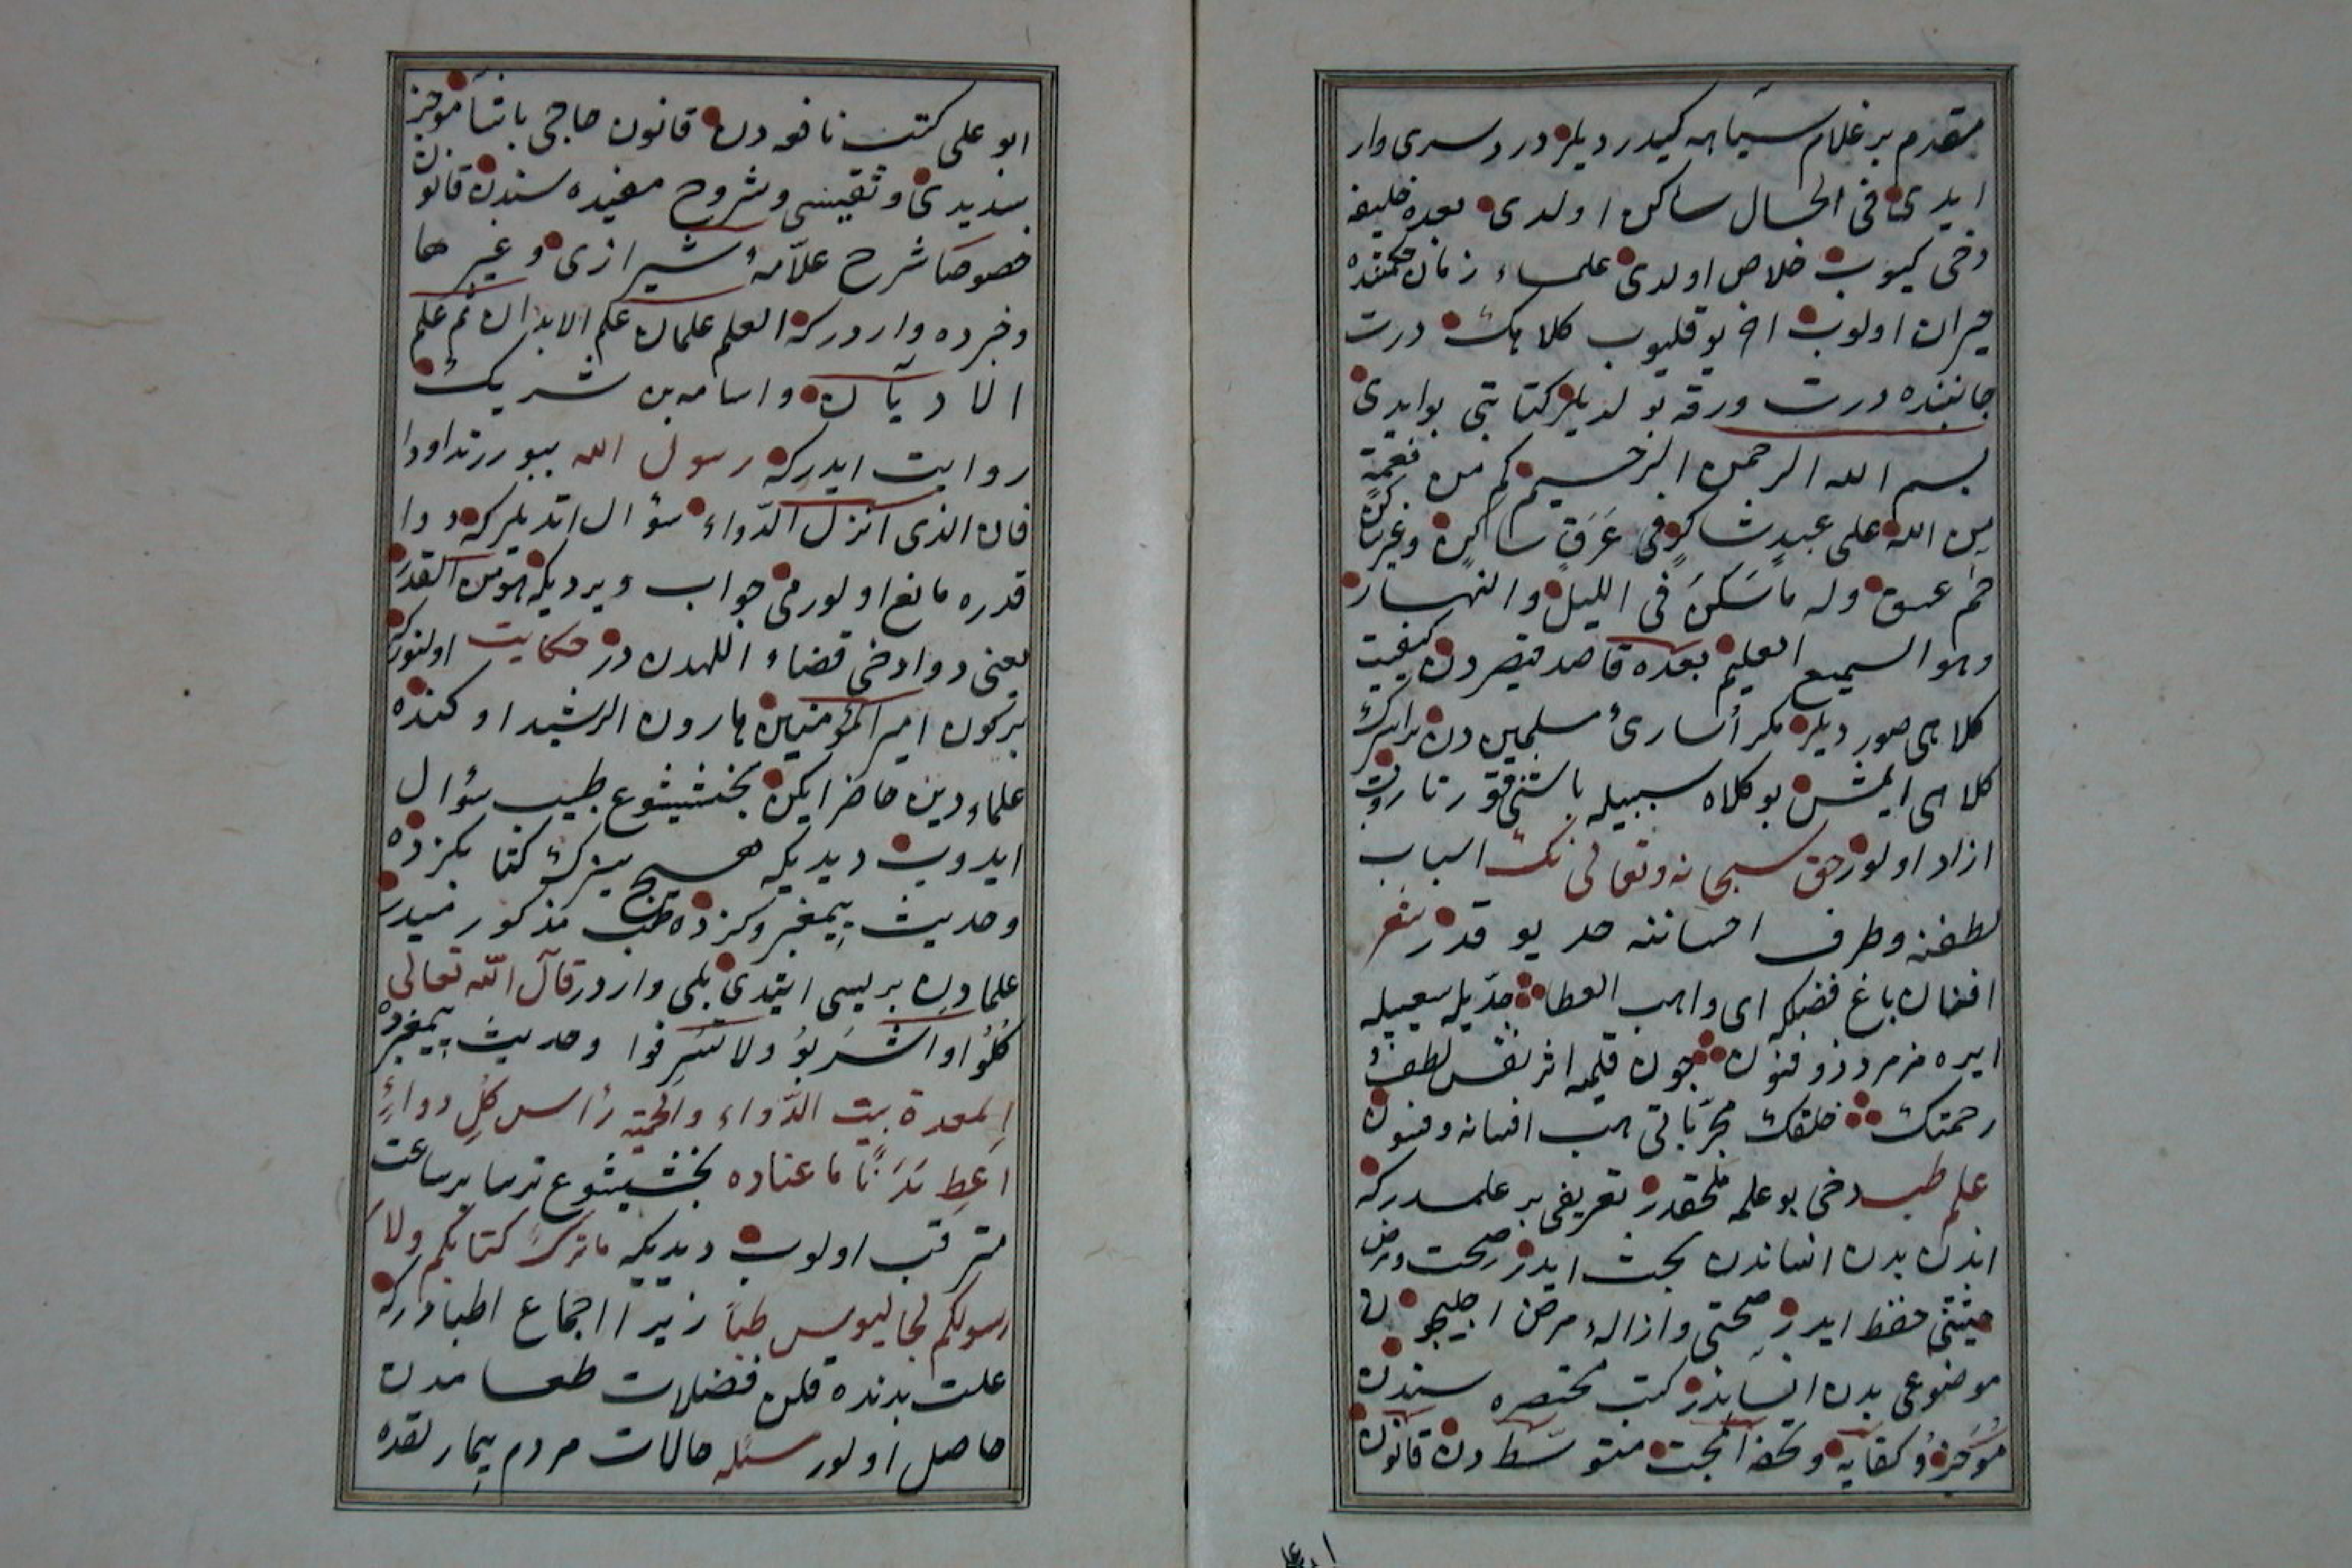 مقدم بر غلام سیاهه کیدردیلر درد سری وار
ایدی فی الحال ساکن اولدی بعده خلیفه
دخی کیوب خلاص اولدی علماء زمان حکمتنده
حیران اولوب اخر یوقلیوب کلاهک درت
جانبنده درت ورقه بولدیلر کتابتی بو ایدی
بسم الله الرحمن الرحیم کم من نعمة
من الله علی عبد شاکر فی عرق ساکن وغیر ساکن
حم عسق وله ما سکن فی اللیل والنهار
وهو السمیع العلیم بعده قاصد قیصردن کیفیت
کلاهی صوردیلر مکر أسارئ مسلمین دن برابرک
کلاهی ایمش بو کلاه سببیله باشنی قورتاروب
ازاد اولور حق سبحانه وتعالی نک اسباب
لطفنه وطرف احساننه حد یوقدر شعر
افغان باغ فضلکه ای واهب العطا جدیله سعیله
ایره مز مرد ذو فنون چون قلمیه اثر نفس لطف و
رحمتک خلقک مجرباتی هب افسانه وفسون
علم طب دخی بو علمه ملحقدر تعریفی بر علمدر که
اندن بدن انساندن بحث ایدر صحت ومرض
حیثیتی حفظ ایدر صحتی وازالهء مرض اجلیچون
موضوعی بدن انساندر کتب مختصره سندن
موجز و کفایه و تحفه امجت متوسط دن قانون
ابو علی کتب نافعه دن قانون حاجی باشا موجز
سدیدی و نفیسی وشروح مفیده سندن قانون
خصوصا شرح علامهٔ شیرازی و غیرها
وخبرده وارد در که العلم علمان علم الابدان ثم علم
الادیان واسامه بن شریک
روایت ایدر که رسول الله بیوررتداووا
فان الذی انزل الدواء سؤال اتدیلر که دوا
قدره مانع اولورمی جواب ویردیکه هو من القدر
یعنی دوا دخی قضاء اللهدن در حکایت اولنور که
بر کون امیر المؤمنین هارون الرشید اوکنده
علماء دین حاضر ایکن بخشیشوع طبیب سؤال
ایدوب دیدیکه هیچ سزک کتابکزده
وحدیث پیغمبروکزده طب مذکور میدر
علمادن بریسی ایتدی بلی وارد در قال الله تعالی
کلوا واشربوا ولا تسرفوا وحدیث پیغمبرده
المعدة بیت الدواء والحمیة رأس کل دواء
اعط بدنا ما عتاده بخشیشوع ترسا بر ساعت
مترقب اولوب دیدیکه ما ترک کتابکم ولا
رسولکم لجالینوس طبا زیرا اجماع اطبا در که
علت بدنده قلن فضلات طعامدن
حاصل اولور مسئله حالات مردم بیمار لقده